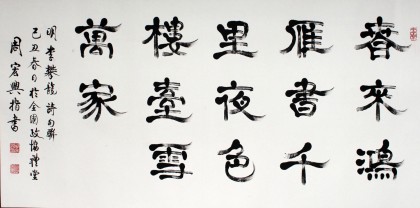 春來鴻
雁書千
里夜色
樓臺雪
萬家
明李攀龍詩句聯
己丑春日於全國政協禮堂
周宏興指書